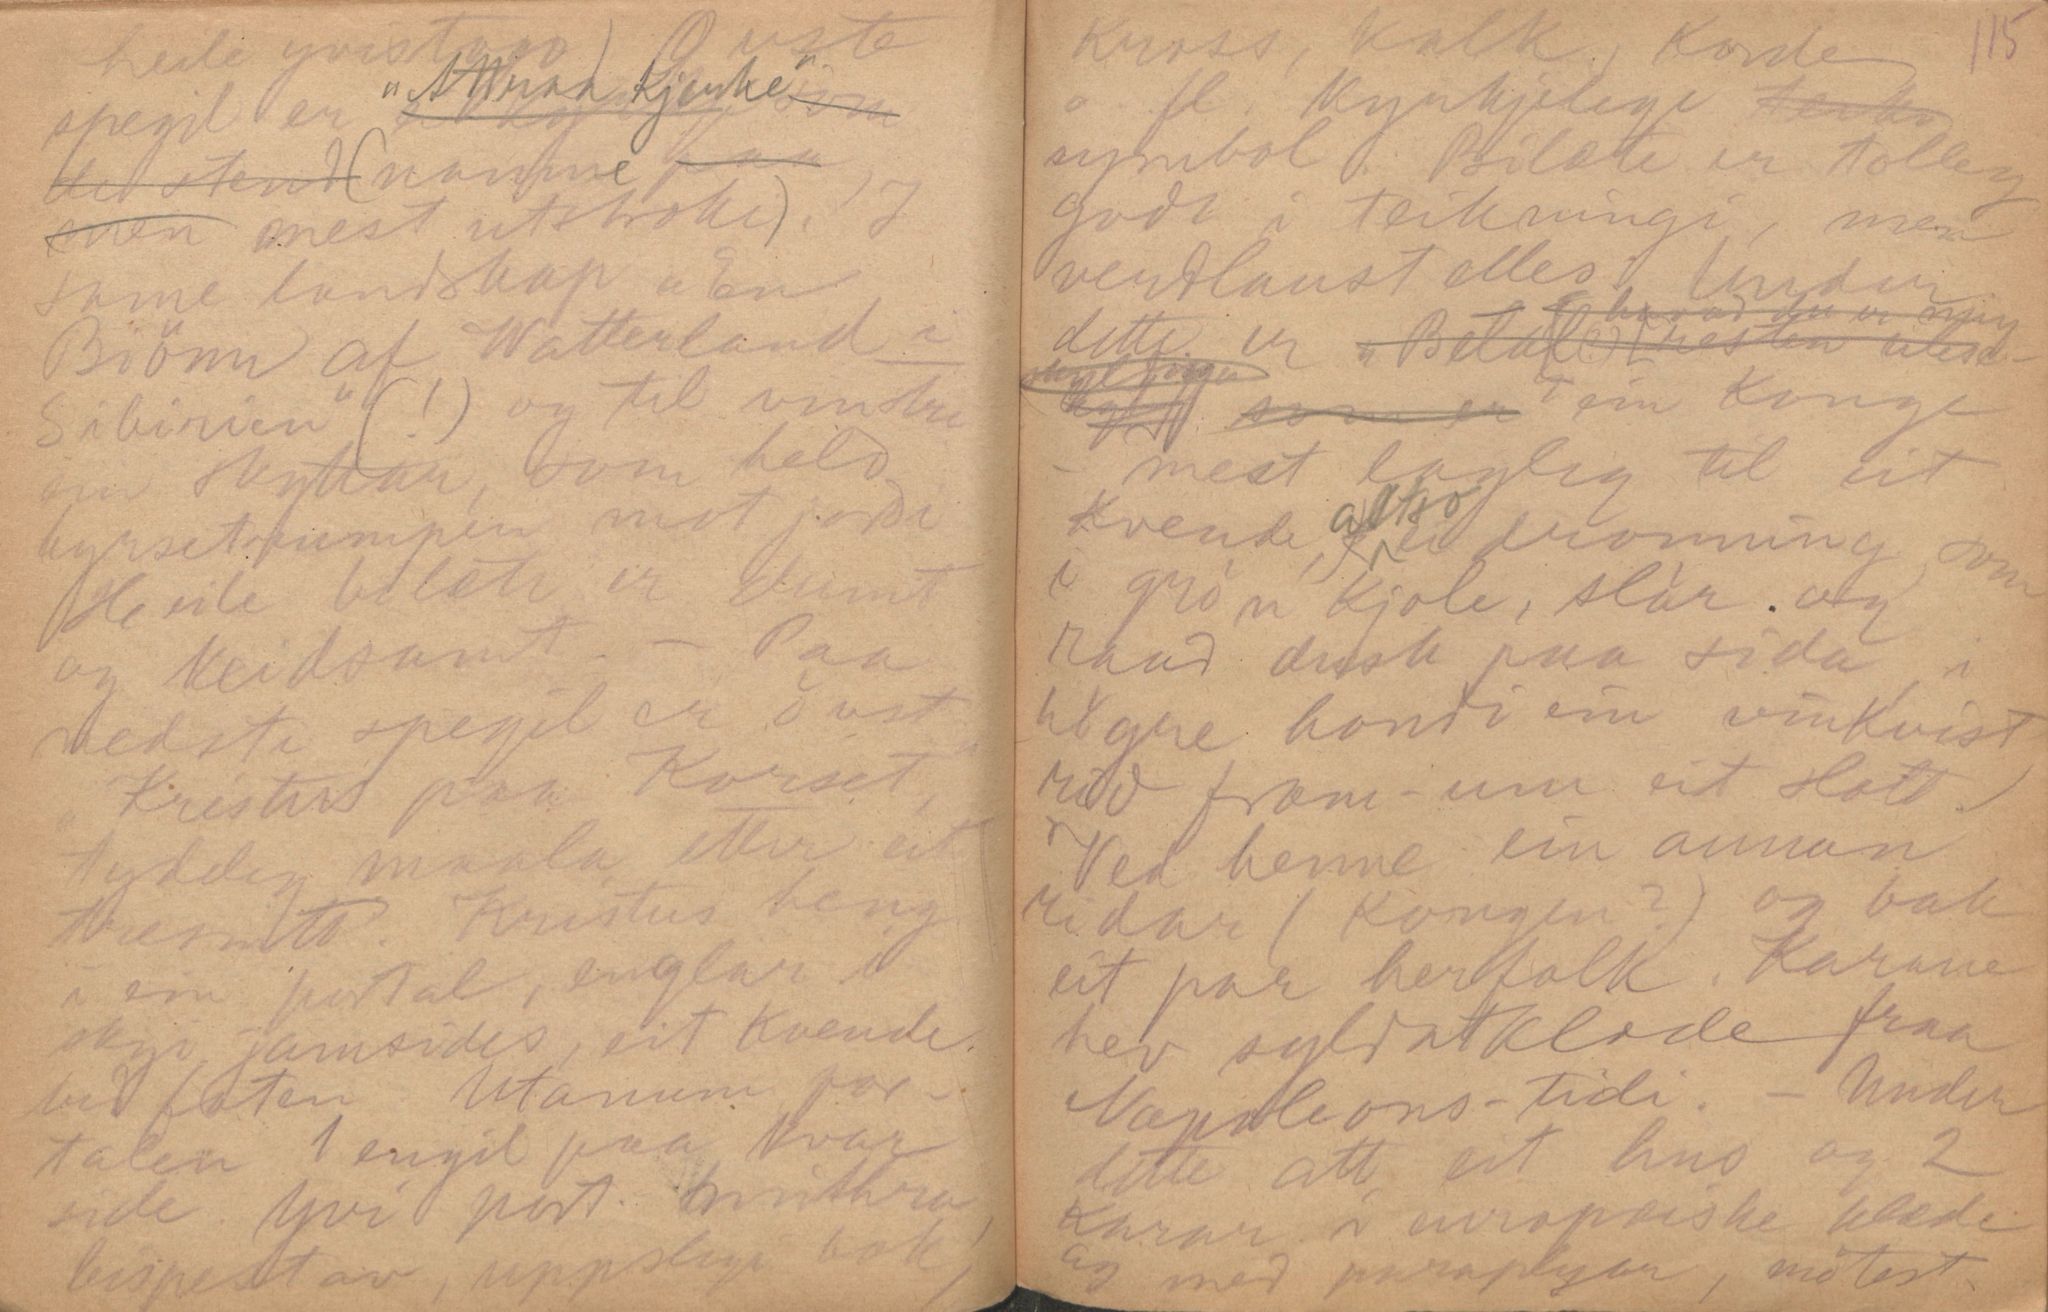 heile
spegil er "Attraa kjerke"
de stend (namne paa
men mest utstroke). I
same landskap "En
Biörn af Watterland i
Sibirien" (!) og til vinstre
ein skyttar, som held
byrsetrumpen mot jordi
Heile bilæte er dumt
og keidsamt. — Paa
nedste spegil er övst
"Kristus paa Korset,"
tydeleg maala etter eit
tresnitt. Kristus heng
i ein portal, englar i
skyi jamsides, eit kvende
ved foten. Utanum por-
talen 1 engil paa kvar
side. Yvi port. mithra,
bispestav, uppslegi bok,
115
Kross, kalk, Korde
o. fl. kyrkjelege
symbol. Bilæte er tolleg
godt i teikningi, men
verdlaust elles. Under
dette er "Betal(e) resten
som er ein Konge
— mest laglig til eit
Kvende, altso ei dronning, som
i grön kjole, slör og
raud dusk paa sida, i
högre hondi ein vinkvist
rid fram-um eit slott.
Ved henne ein annan
ridar (Kongen?) og bak
eit par herfolk. Karane
hev syldatklæde fraa
Napoleons-tidi. — Under
dette att eit hus og 2
Karar i europæiske klæde
og med paraplyar, mötest